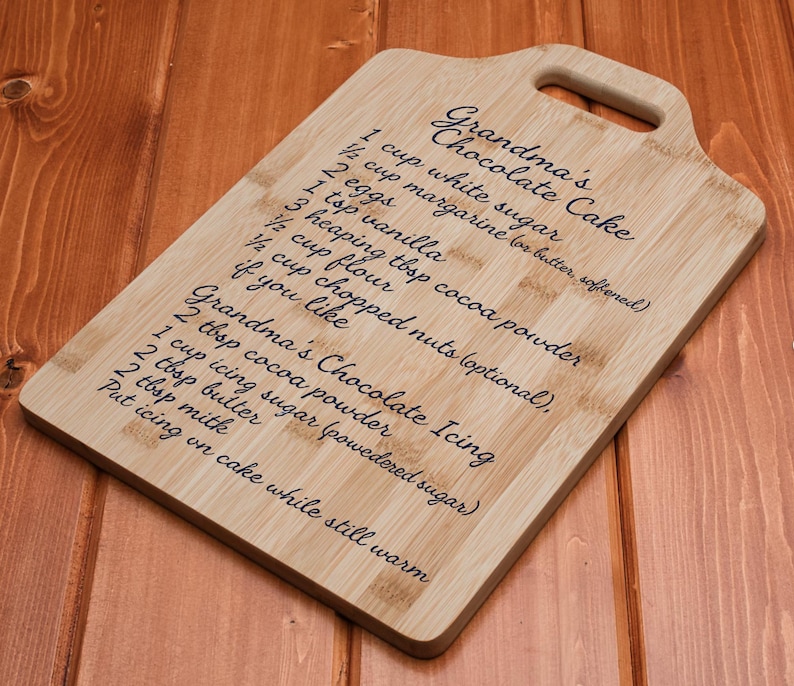 Grandma's
Chocolate Cake
1 cup white sugar
½ cup margarine (or butter, softened)
2 eggs
1 tsp vanilla
3 heaping tbsp cocoa powder
½ cup flour
½ cup chopped nuts (optional),
if you like
Grandma's Chocolate Icing
2 tbsp cocoa powder
1 cup icing sugar (powedered sugar)
2 tbsp butter
2 tbsp milk
Put icing on cake while still warm